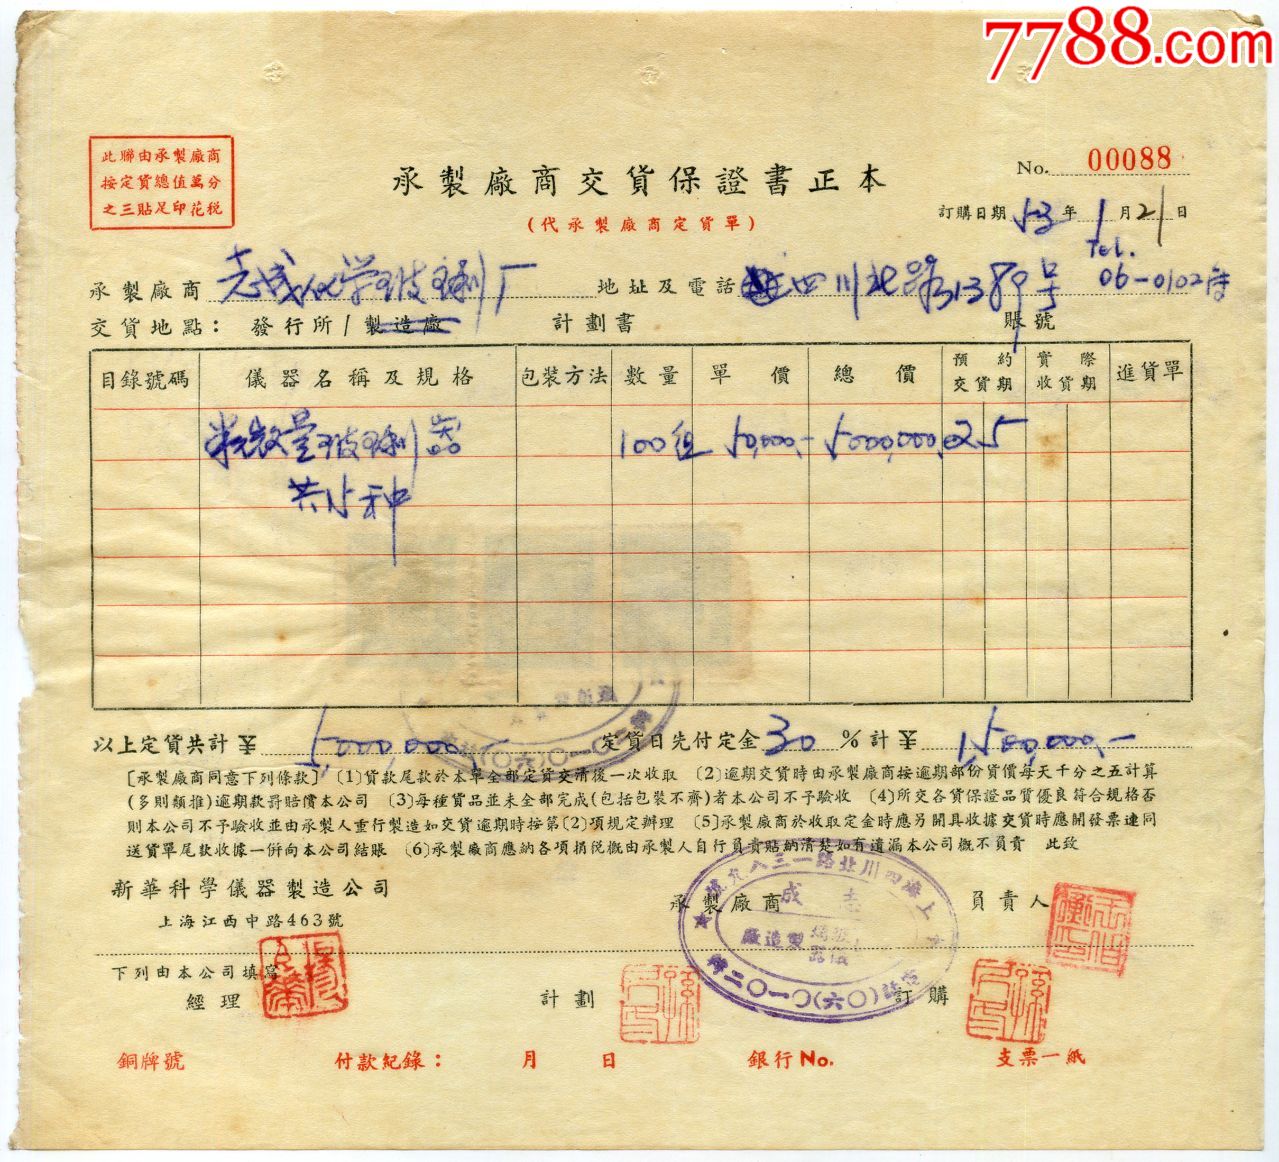 7788.com
此聯由承製廠商
按定貨總值萬分
之三貼足印花稅
承製廠商交貨保證書正本
(代承製廠商定貨單)
No. 00088
訂購日期 53 年 1 月 21 日
Tel.
承製廠商 志成化学玻璃厂 地址及電話 四川北路1389号 06-0102
交貨地點：發行所/製造廠 計劃書 賬號
目錄號碼 儀器名稱及規格 包裝方法 數量 單價 總價 預約交貨期 實際收貨期 進貨單
量玻璃器 100组 50,000.- 5000,000. 2 5
共15种
以上定貨共計¥ 5,000,000.- 定貨日先付定金 30 %計¥ 1,500,000.-
[承製廠商同意下列條款] (1)貨款尾款於本單全部定貨交清後一次收取 (2)逾期交貨時由承製廠商按逾期部份貨價每天千分之五計算
(多則類推)逾期款罸賠償本公司 (3)每種貨品並未全部完成(包括包裝不齊)者本公司不予驗收 (4)所交各貨保證品質優良符合規格否
則本公司不予驗收並由承製人重行製造如交貨逾期時按第(2)項規定辦理 (5)承製廠商於收取定金時應另開具收據交貨時應開發票連同
送貨單尾款收據一併向本公司結賬 (6)承製廠商應納各項捐稅概由承製人自行負責貼納清楚如有遺漏本公司概不負責 此致
新華科學儀器製造公司
上海江西中路463號
承製廠商 負責人
上海四川北路一三八九號
志成
製造廠
電話(〇六)〇一〇二轉
下列由本公司填寫
經理 計劃 訂購
銅牌號 付款紀錄： 月 日 銀行No. 支票一紙